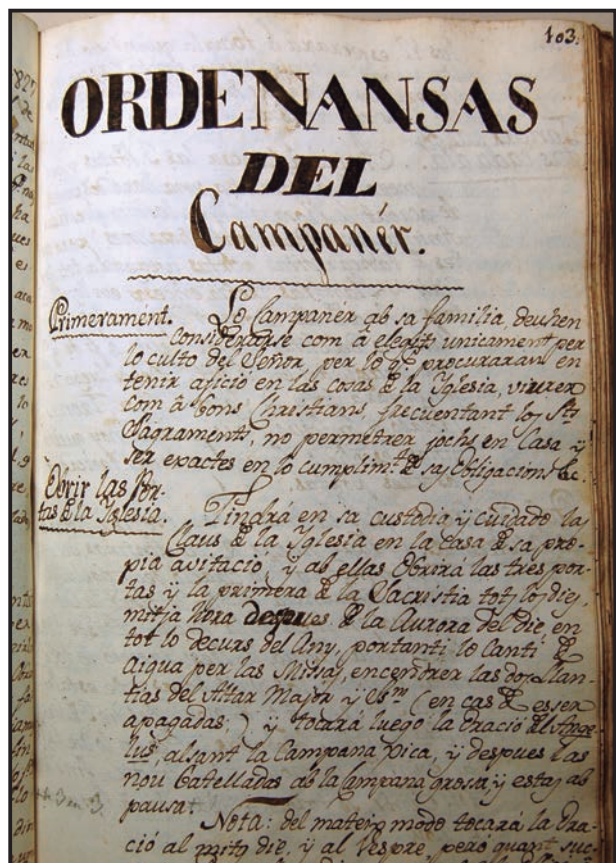 103.
ORDENANSAS
DEL
Campanér.
Primeramént. Lo Campanér ab sa familia, deuhen
considerarse com â elegits unicament per
lo culto del Señor, per lo qe. procuraran en
tenir aficio en las cosas de la Iglesia, viurer
com â bons Christians, frecuentant los Sts.
Sagraments, no permetrer jochs en Casa y
ser exactes en lo cumplimt. de sas Obligacions &c.
Obrir las Por-
tas de la Iglesia.
Tindrá en sa custodia y cuidado las
Claus de la Iglesia en la casa de sa pro-
pia avitació, y ab ellas Obrirá las tres por-
tas y la primera de la Sacristia tots los dies,
mitja hora despues de la Aurora del die, en
tot lo decurs del Any, portanti lo Canti de
Aigua per las Missas, encendrer las dos llan-
tias del Altar Major y (en cas de esser
apagadas;) y tocará luego la Oració del Ange-
lus, alsant la Campana Xica, y despues las
nou batelladas ab la Campana grossa, y estas ab
pausa.
Nota: del mateix modo tocará la Ora-
ció al mitg die, y al Vespre, peró quant suc-